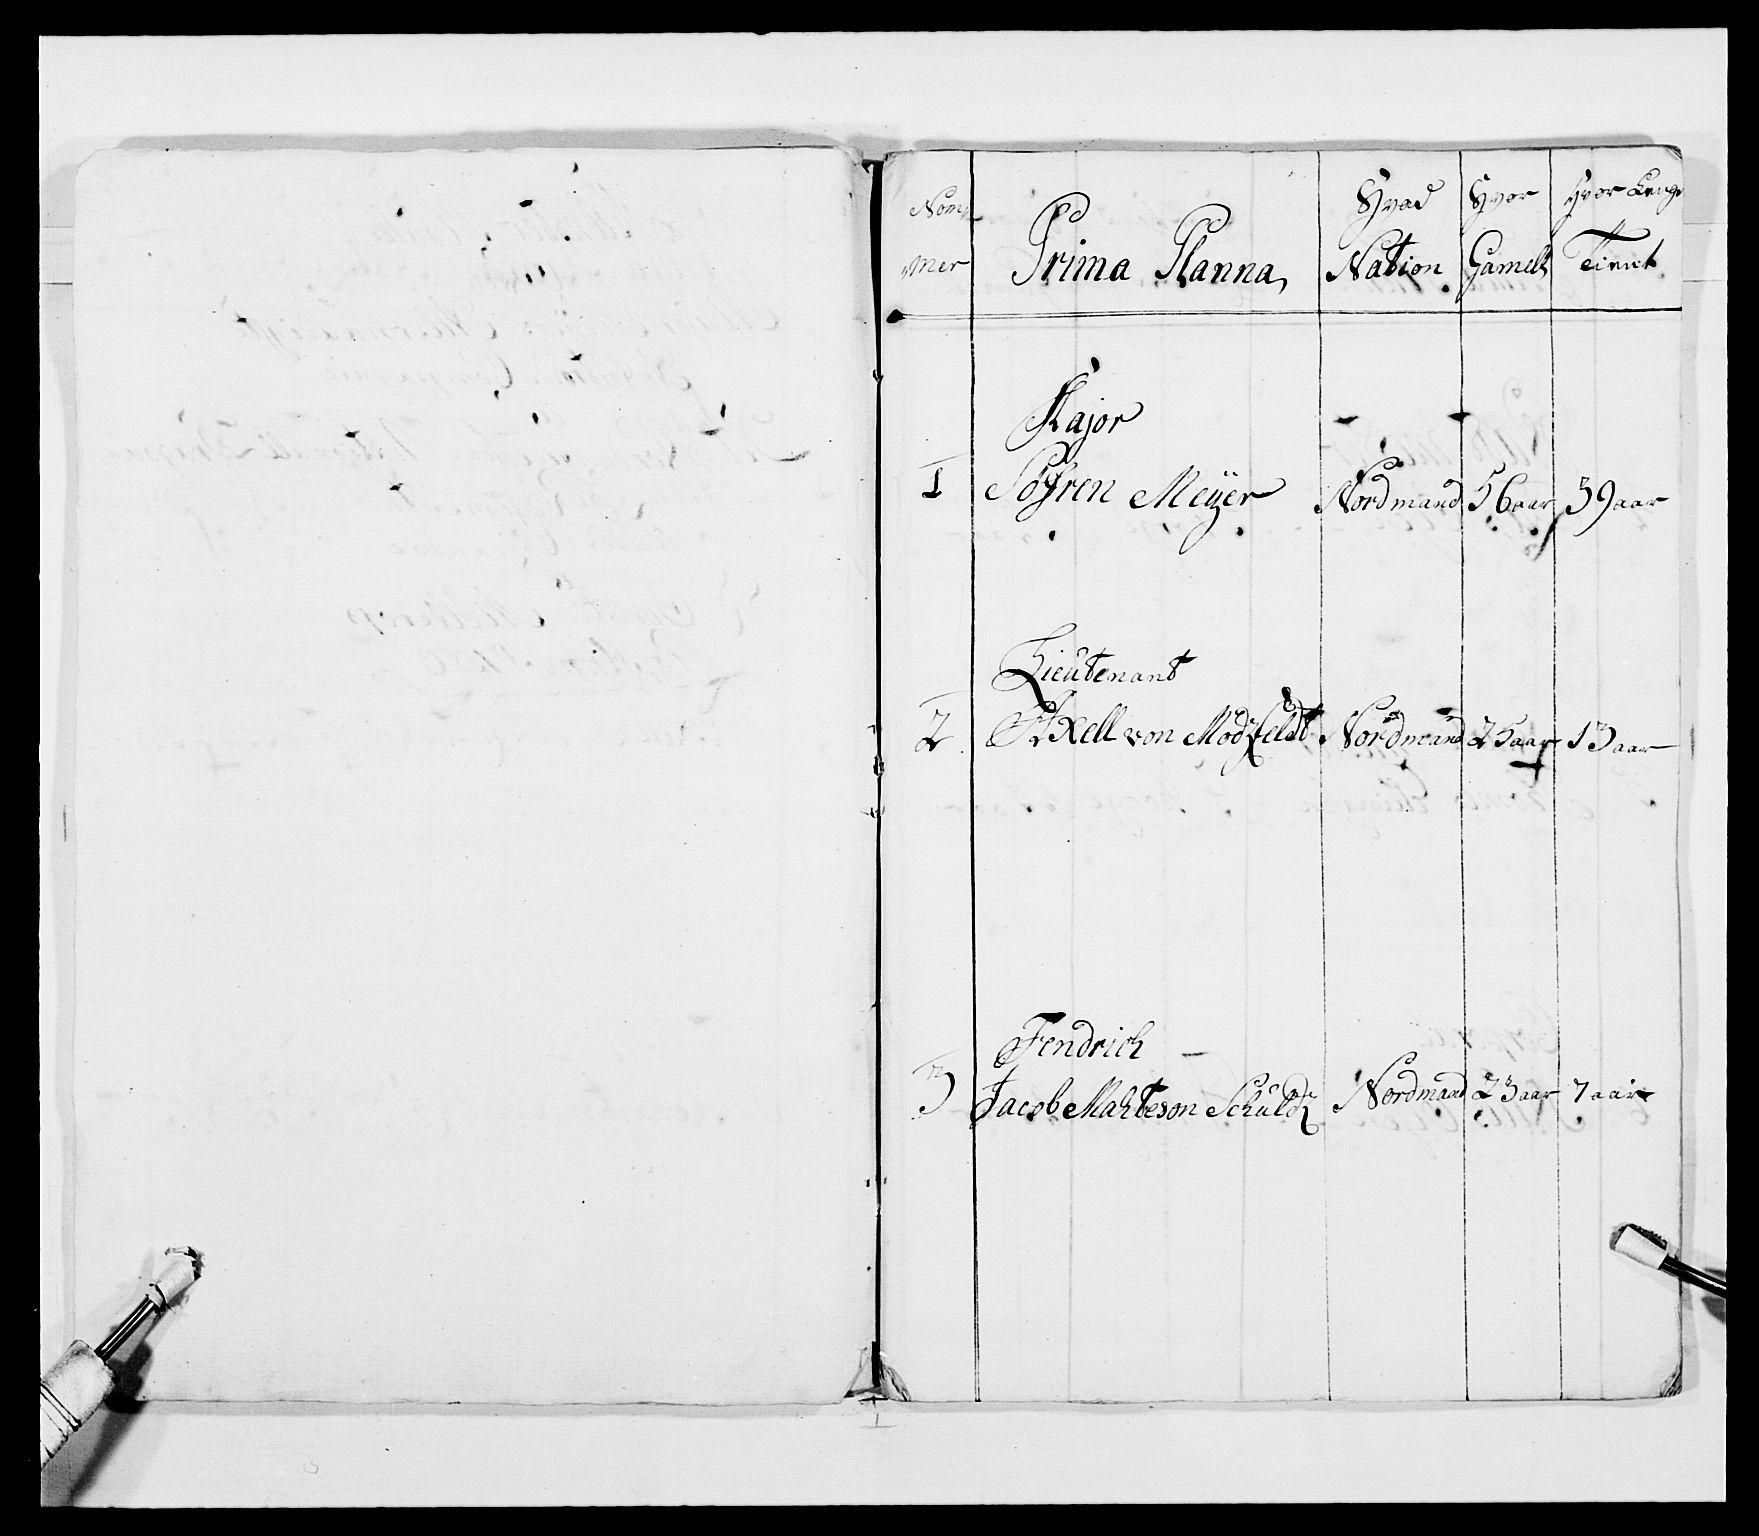 Nom Hvad Hvor Hvor Lenge
mer Prima Planna, Nation Gamell Tient
Major
1 Søfren Meÿer Nordmand 56 aar 39 aar
Lieutenant
2 Axell von Modzfeldt Nordmand 25 aar 13 aar
Fendrich
3 Jacob Mahteson Schuldz Nordmand 23 aar 7 aar